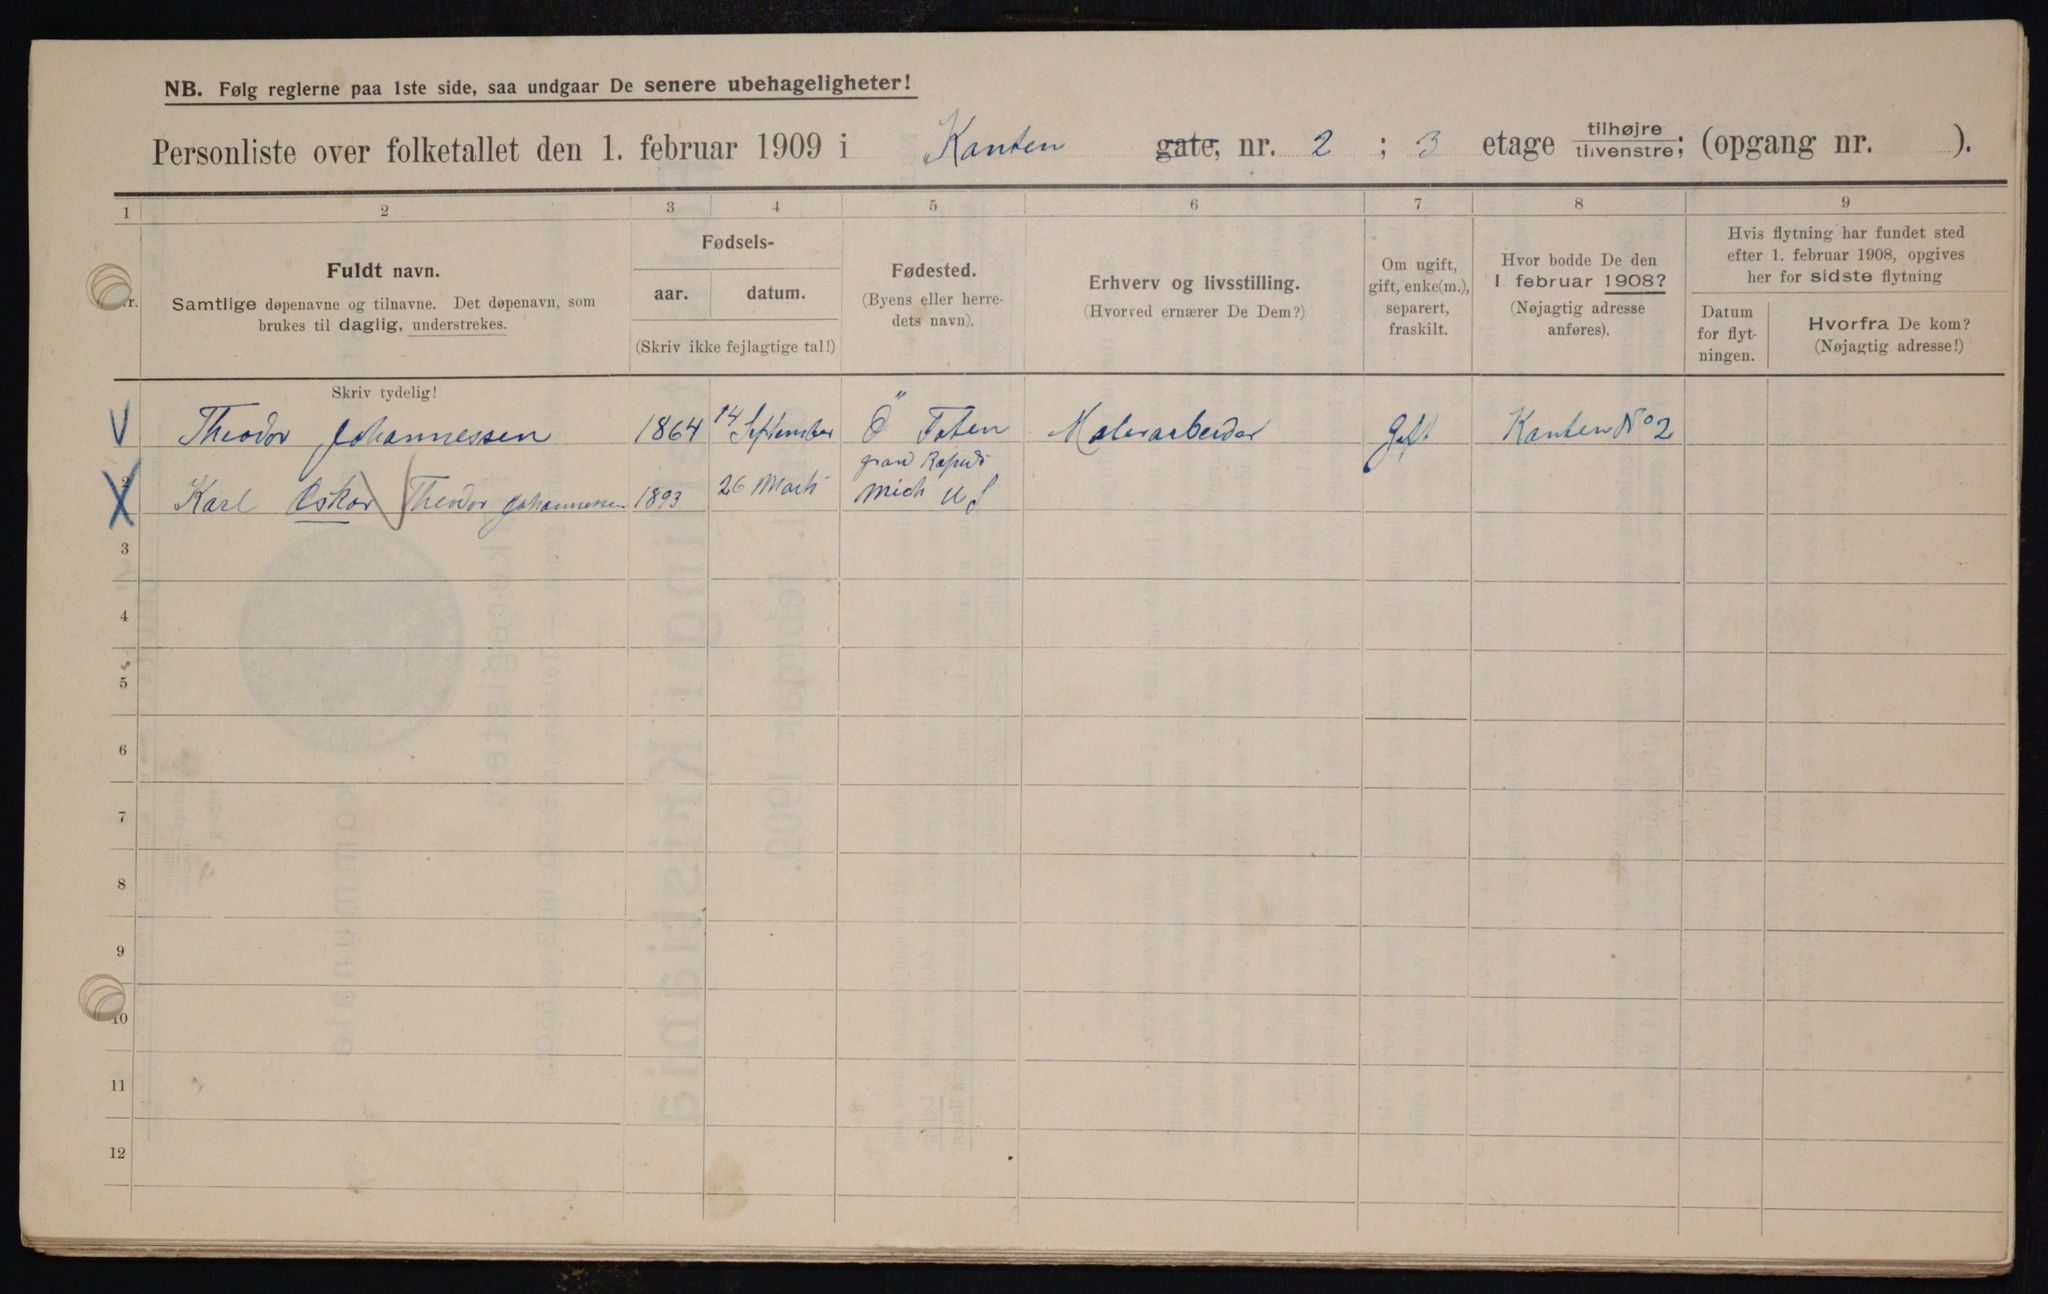 NB. Følg reglerne paa 1ste side, saa undgaar De senere ubehageligheter!
Personliste over folketallet den 1. februar 1909 i Kanten gate, nr. 2 ; 3 etage tilhøjre tilvenstre; (opgang nr. ).
1 2 3 4 5 6 7 8 9
Nr.
Fuldt navn.
Samtlige døpenavne og tilnavne. Det døpenavn, som
brukes til daglig, understrekes.
Skriv tydelig!
Fødsels-
aar. datum.
(Skriv ikke fejlagtige tal!)
Fødested.
(Byens eller herre-
dets navn).
Erhverv og livsstilling.
(Hvorved ernærer De Dem?)
Om ugift,
gift, enke(m.),
separert,
fraskilt.
Hvor bodde De den
1. februar 1908?
(Nøjagtig adresse
anføres).
Hvis flytning har fundet sted
efter 1. februar 1908, opgives
her for sidste flytning
Datum
for flyt-
ningen.
Hvorfra De kom?
(Nøjagtig adresse!)
Theodor Johannessen 1864 14 September Ö Toten Malerarbeider Gift Kanten No 2
2 Karl Oskar Theodor Johannessen 1893 26 Marts grand Rapids
Mich U S
3
4
5
6
7
8
9
10
11
12